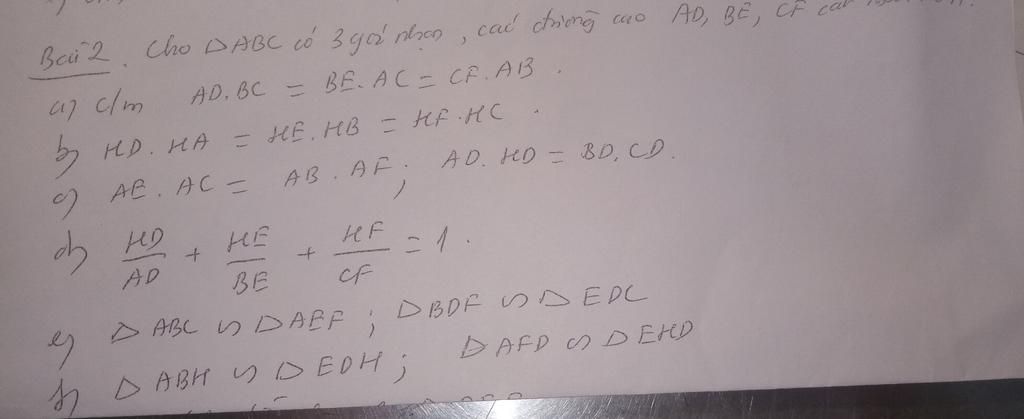 Bài 2. Cho △ABC có 3 góc nhọn, các đường cao AD, BE, CF cắt
a) c/m AD.BC = BE.AC = CF.AB.
b) HD.HA = HE.HB = HF.HC.
c) AE.AC = AB.AF; AD.HD = BD.CD.
d) HD/AD + HE/BE + HF/CF = 1.
e) △ABC ∽ △AEF; △BDF ∽ △EDC
f) △ABH ∽ △EDH; △AFD ∽ △EHD